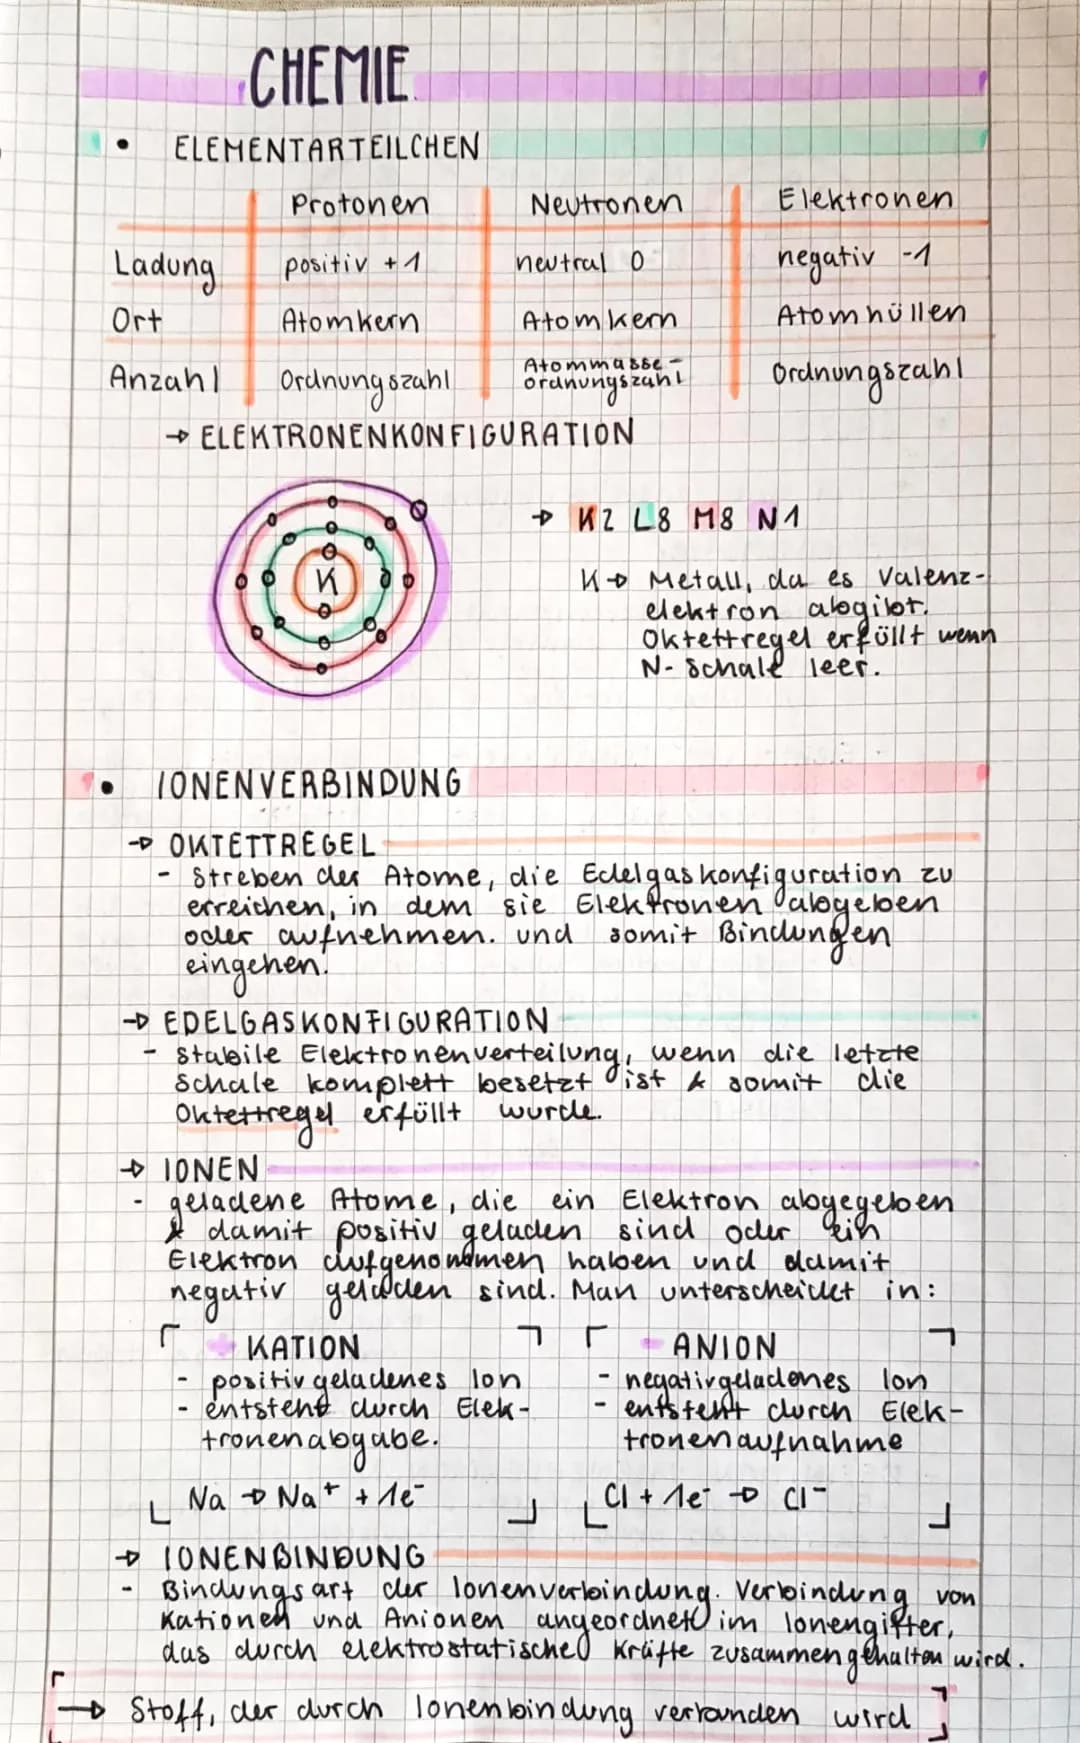 CHEMIE
• ELEMENTARTEILCHEN
Protonen Neutronen Elektronen
Ladung positiv +1 neutral 0 negativ -1
Ort Atomkern Atomkern Atomhüllen
Anzahl Ordnungszahl Atommasse - ordnungszahl Ordnungszahl
→ ELEKTRONENKONFIGURATION
K
→ K2 L8 M8 N1
K→ Metall, da es Valenz-
elektron abgibt.
Oktettregel erfüllt wenn
N-Schale leer.
• IONENVERBINDUNG
→ OKTETTREGEL
- Streben der Atome, die Edelgaskonfiguration zu
erreichen, in dem sie Elektronen abgeben
oder aufnehmen. und somit Bindungen
eingehen.
→ EDELGASKONFIGURATION
- stabile Elektronenverteilung, wenn die letzte
Schale komplett besetzt ist & somit die
Oktettregel erfüllt wurde.
→ IONEN
- geladene Atome, die ein Elektron abgegeben
& damit positiv geladen sind oder ein
Elektron aufgenommen haben und damit
negativ geladen sind. Man unterscheidet in:
+ KATION
- positiv geladenes Ion
- entsteht durch Elek-
tronenabgabe.
Na → Na⁺ + 1e⁻
- ANION
- negativgeladenes Ion
- entsteht durch Elek-
tronenaufnahme
Cl + 1e⁻ → Cl⁻
→ IONENBINDUNG
- Bindungsart der Ionenverbindung. Verbindung von
Kationen und Anionen angeordnet im Ionengitter,
das durch elektrostatische Kräfte zusammengehalten wird.
→ Stoff, der durch Ionenbindung verbunden wird